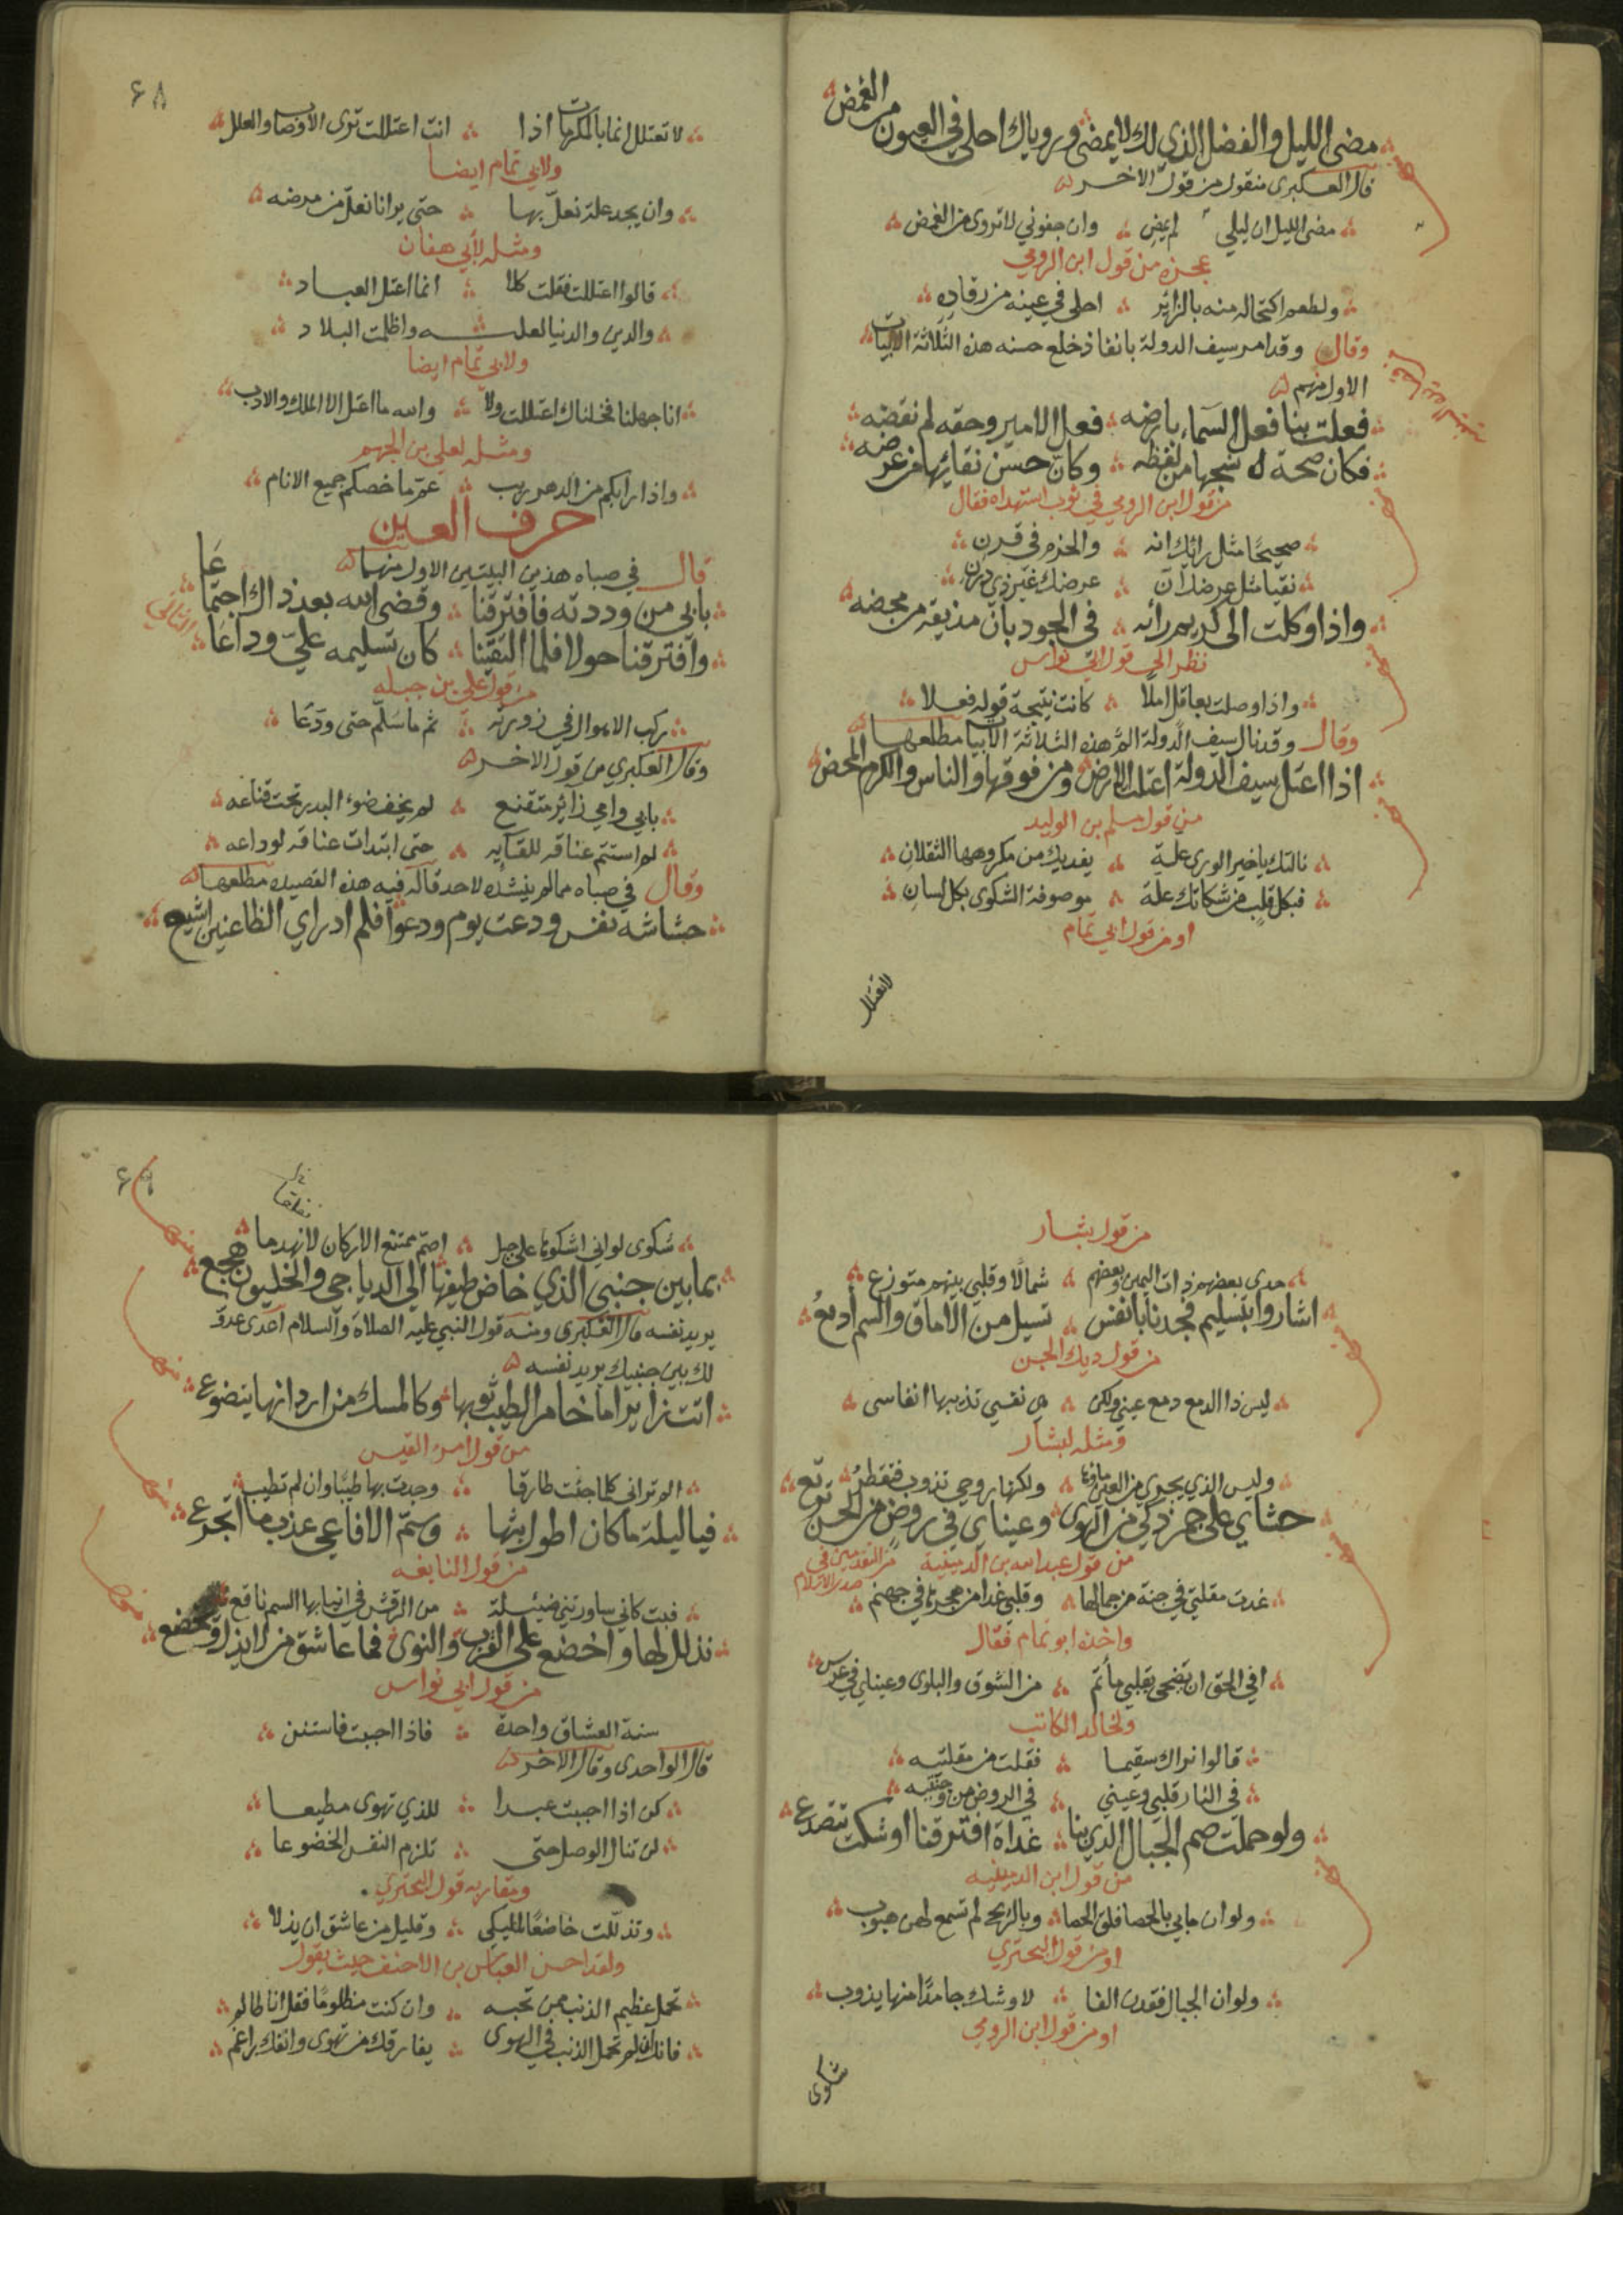 الغمض
مضى الليل والفضل الذي لك لا يمضى ورؤياك احلى في العيون من
قال العكبرى منقول من قول الاخر
مضى الليل ان ليلي لم يمض وان جفوني لا تروى من الغمض
عجزه من قول ابن الرومي
ولطعم اكتحاله منه بالزائر احلى في عينه من رقاده
وقال وقد امر سيف الدولة بانفاذ خلع حسنه هذه الثلاثة الابيات
الاول منهم
فعلت بنا فعل السماء بارضه فعل الامير وحقه لم نقضه
فكان صحة نسجها من لفظه وكان حسن نقائها من عرضه
من قول ابن الرومي في ثوب استهداه فقال
صحيحا مثل رائيك انه والحزم في قرن
نقيا مثل عرضك ان عرضك غير ذي درن
واذا وكلت الى كريم رائه في الجود بان مذيقه من محضه
نظر الى قول ابي نواس
واذا وصلت بعاقل املا كانت نتيجة قوله فعلا
وقال وقد نال سيف الدولة الم هذه الثلاثة الابيات مطلعها
اذا اعتل سيف الدولة اعتلت الارض ومن فوقها والناس والكرم المحض
من قول مسلم بن الوليد
نالتك يا خير الورى علة يفديك من مكروهها الثقلان
فبكل قلب من شكاتك علة موصوفة الشكوى بكل لسان
او من قول ابي تمام
لا تعتلل
٦٨
لا تعتلل انما بالمكرمات اذا انت اعتللت ترى الاوصاب والعلل
ولابي تمام ايضا
وان يجد علة نعل بها حتى يرانا نعل من مرضه
ومثله لابي هفان
قالوا اعتللت فقلت كلا انما اعتل العباد
والدين والدنيا لعلته واظلمت البلاد
ولابي تمام ايضا
انا جهلنا فخلناك اعتللت ولا والله ما اعتل الا الملك والادب
ومثله لعلي بن الجهم
واذا رابكم من الدهر ريب عم ما خصكم جميع الانام
حرف العين
قال في صباه هذين البيتين الاول منهما
بابي من وددته فافترقنا وقضى الله بعد ذاك اجتماعا
الثاني
وافترقنا حولا فلما التقينا كان تسليمه علي وداعا
من قول علي بن جبله
ركب الاهوال في زورته ثم ما سلم حتى ودعا
وقال العكبري من قول الاخر
بابي وامي زائر متقنع لم يخف ضوء البدر تحت قناعه
لم استتم عناقه للقائه حتى ابتدات عناقه لوداعه
وقال في صباه مما لم ينشده لاحد قاله فيه هذه القصيده مطلعها
حشاشة نفس ودعت يوم ودعوا فلم ادر اي الظاعنين اشيع
من قول بشار
حدى بعضهم ذات اليمين وبعضهم شمالا وقلبي بينهم متوزع
اشاروا بتسليم فجدنا بانفس تسيل من الاماق والسم ادمع
من قول ديك الجن
ليس ذا الدمع دمع عيني ولكن هي نفسي تذيبها انفاسى
ومثله لبشار
وليس الذي يجري من العين ماؤها ولكنها روحي تذوب فتقطر
حشاي على جمر ذكي من الهوى وعيناي في روض من الحسن ترتع
من قول عبد الله بن الدمينية من المتقدمين في صدر الاسلام
غدت مقلتي في جنة من جمالها وقلبي غدا من هجرها في جهنم
واخذه ابو تمام فقال
افي الحق ان يضحى بقلبي ماتم من الشوق والبلوى وعيناي في عرس
ولخالد الكاتب
قالوا نراك سقيما فقلت من مقلتيه
في النار قلبي وعيني في الروض من وجنتيه
ولو حملت صم الجبال الذي بنا غداة افترقنا اوشكت تتصدع
من قول ابن الدمينيه
ولو ان ما بي بالحصا فلق الحصا وبالريح لم تسمع لهن هبوب
او من قول البحتري
ولو ان الجبال فقدن الفا لاوشك جامدا منها يذوب
او من قول ابن الرومي
شكوى
٦٩
شكوى لو اني اشكوها على جبل اصم ممتنع الاركان لانهدما
بما بين جنبي الذي خاض طيفها الي الدياجى والخليون هجع
يريد نفسه قال العكبري ومنه قول النبي عليه الصلاة والسلام اعدى عدو
لك بين جنبيك يريد نفسه
اتت زايرا ما خامر الطيب ثوبها وكالمسك من اردانها يتضوع
من قول امرء القيس
الم تراني كلما جئت طارقا وجدت بها طيبا وان لم تطيب
فيا ليلة ما كان اطول بثها وسم الافاعي عذب ما اتجرع
من قول النابغه
فبت كاني ساورتني ضئيلة من الرقش في انيابها السم ناقع
تذلل لها واخضع على القرب والنوى فما عاشق من لا يذل ويخضع
من قول ابي نواس
سنة العشاق واحدة فاذا احببت فاستنن
قال الواحدى وقال الاخر
كن اذا احببت عبدا للذي تهوى مطيعا
لن تنال الوصل حتى تلزم النفس الخضوعا
ويقاربه قول البحتري
وتذللت خاضعا لمليكي وقليل من عاشق ان يذلا
ولقد احسن العباس بن الاحنف حيث يقول
تحمل عظيم الذنب ممن تحبه وان كنت مظلوما فقل انا ظالم
فانك ان لم تحمل الذنب في الهوى يفارقك من تهوى وانفك راغم